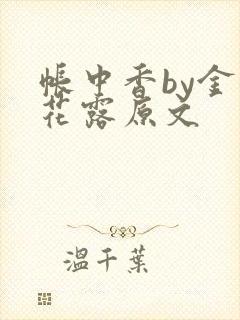 帐中香by金
花露原文
温千葉